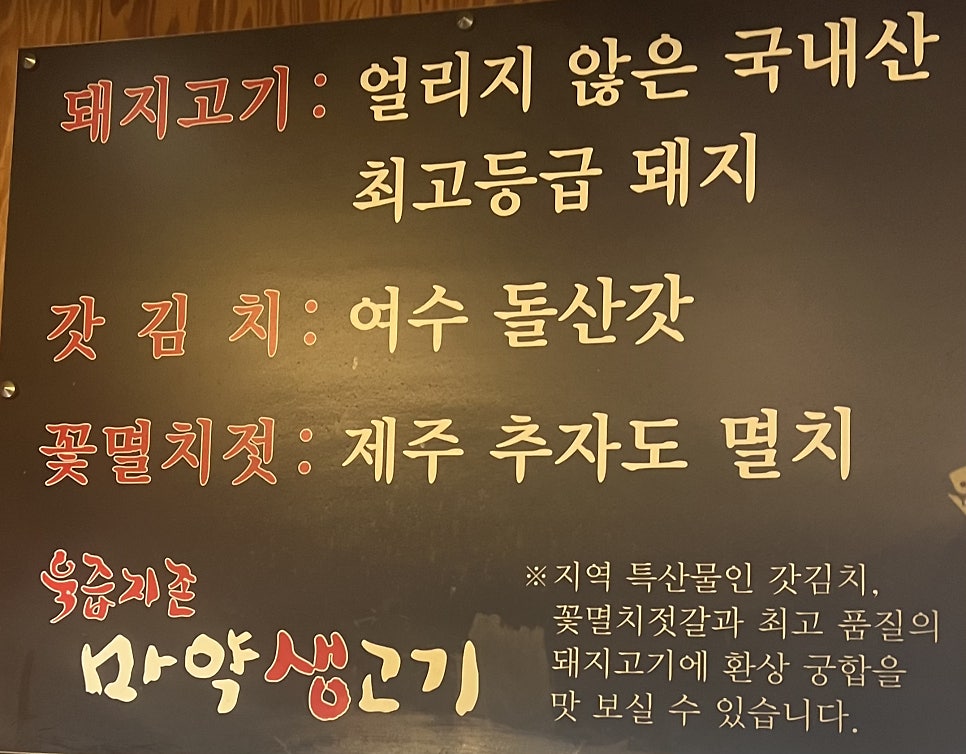 돼지고기 : 얼리지 않은 국내산
최고등급 돼지
갓 김 치 : 여수 돌산갓
꽃멸치젓 : 제주 추자도 멸치
육즙지존
마약생고기
※지역 특산물인 갓김치,
꽃멸치젓갈과 최고 품질의
돼지고기에 환상 궁합을
맛 보실 수 있습니다.